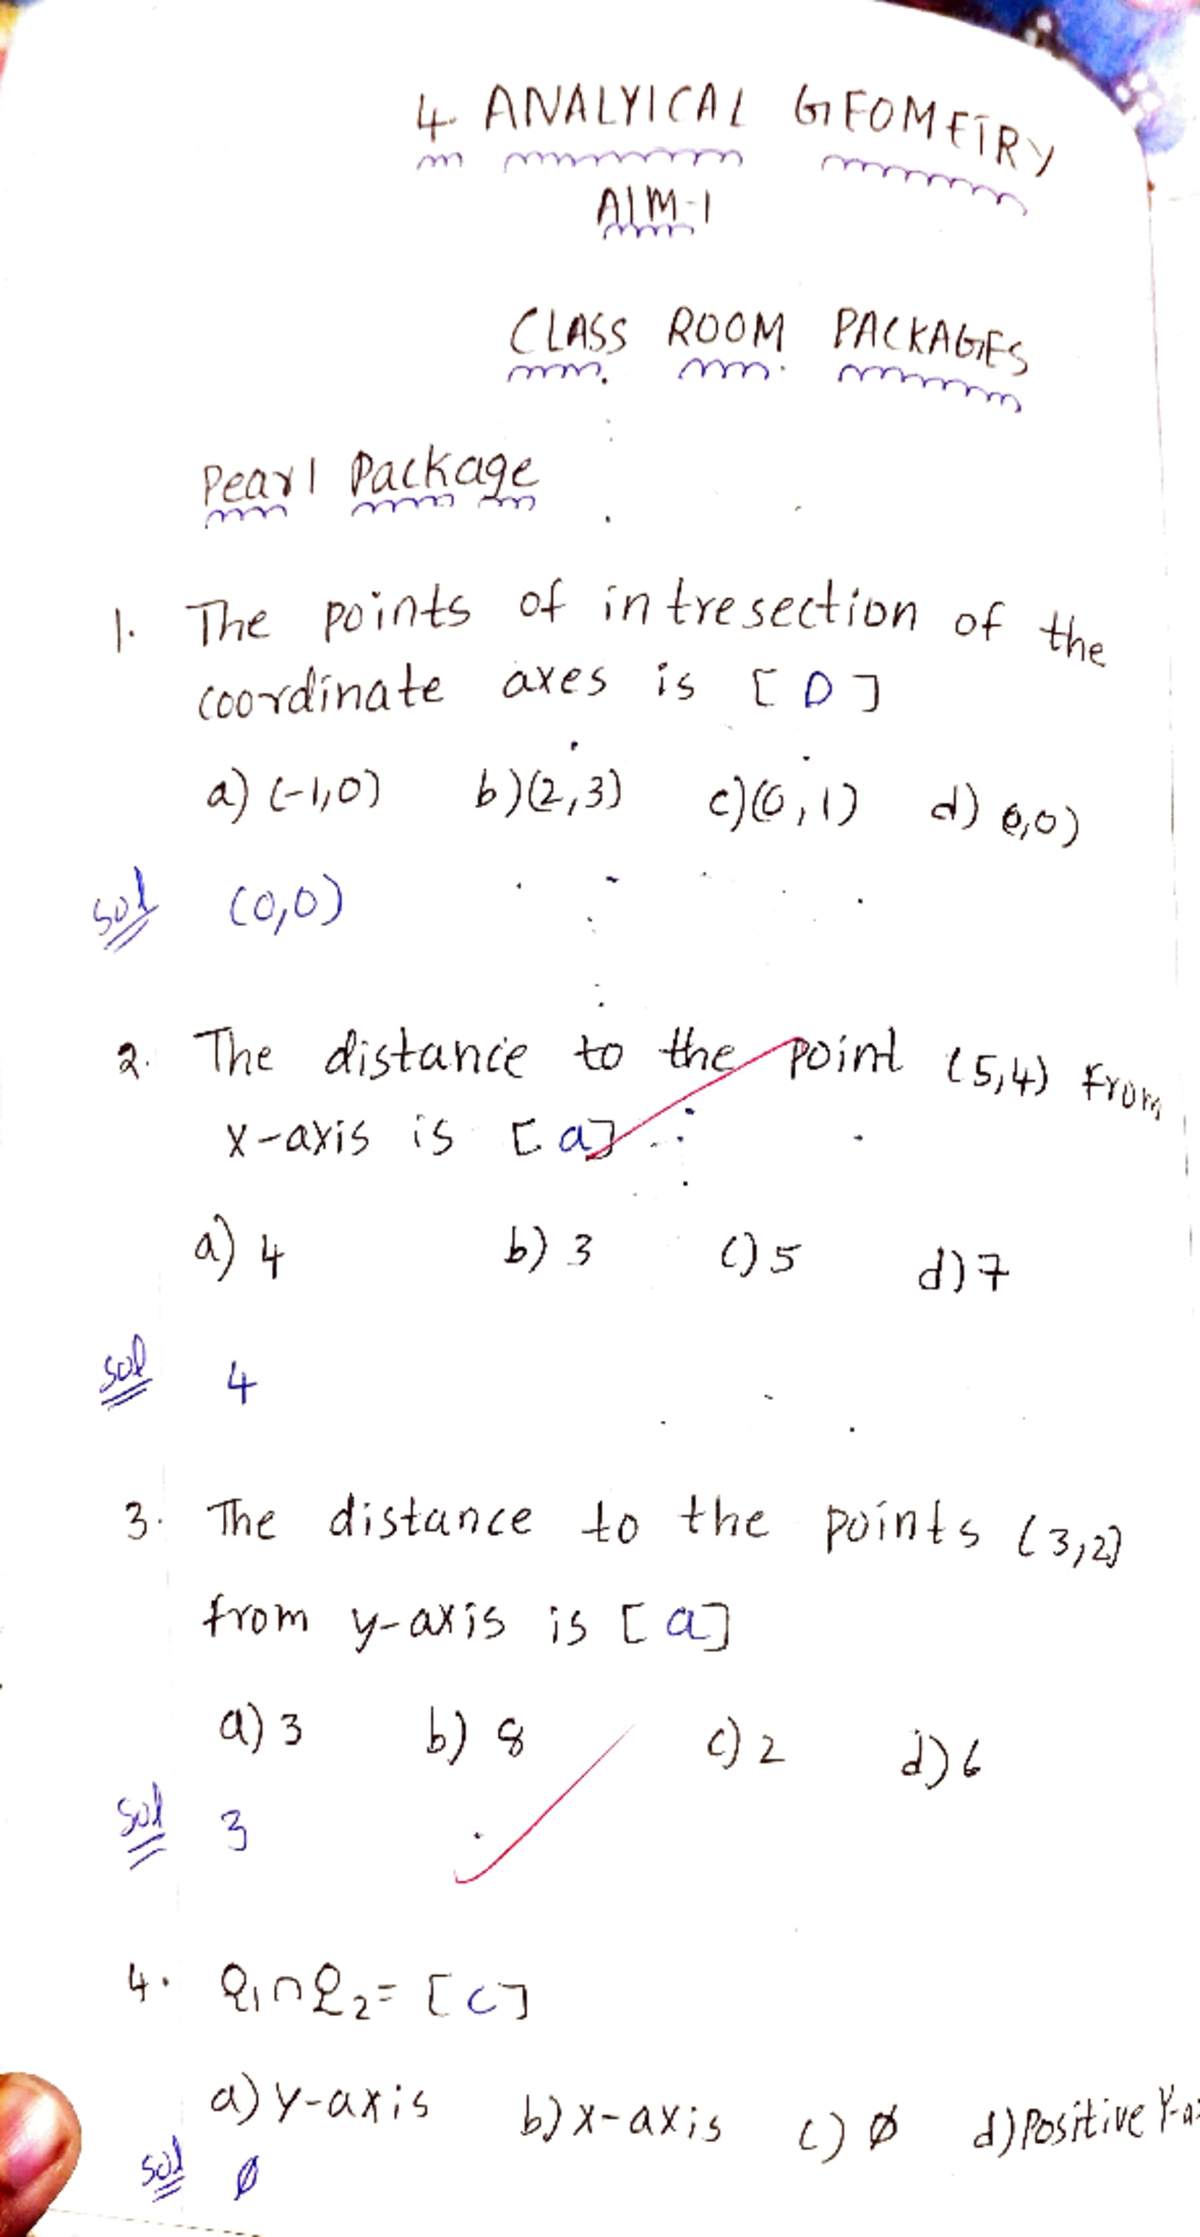 4. ANALYICAL GEOMETRY
AIM-1
CLASS ROOM PACKAGES
Pearl Package
1. The points of intresection of the
coordinate axes is [D]
a) (-1,0) b)(2,3) c)(0,1) d) 0,0)
sol (0,0)
2. The distance to the point (5,4) from
x-axis is [a]
a) 4 b) 3 c) 5 d) 7
sol 4
3. The distance to the points (3,2)
from y-axis is [a]
a) 3 b) 8 c) 2 d) 6
sol 3
4. Q₁∩Q₂= [C]
a) y-axis b) x-axis c) ø d) Positive Y-a
sol ø